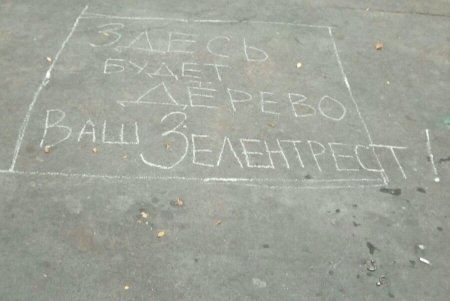 ЗДЕСЬ
БУДЕТ
ДЕРЕВО
ВАШ ЗЕЛЕНТРЕСТ!